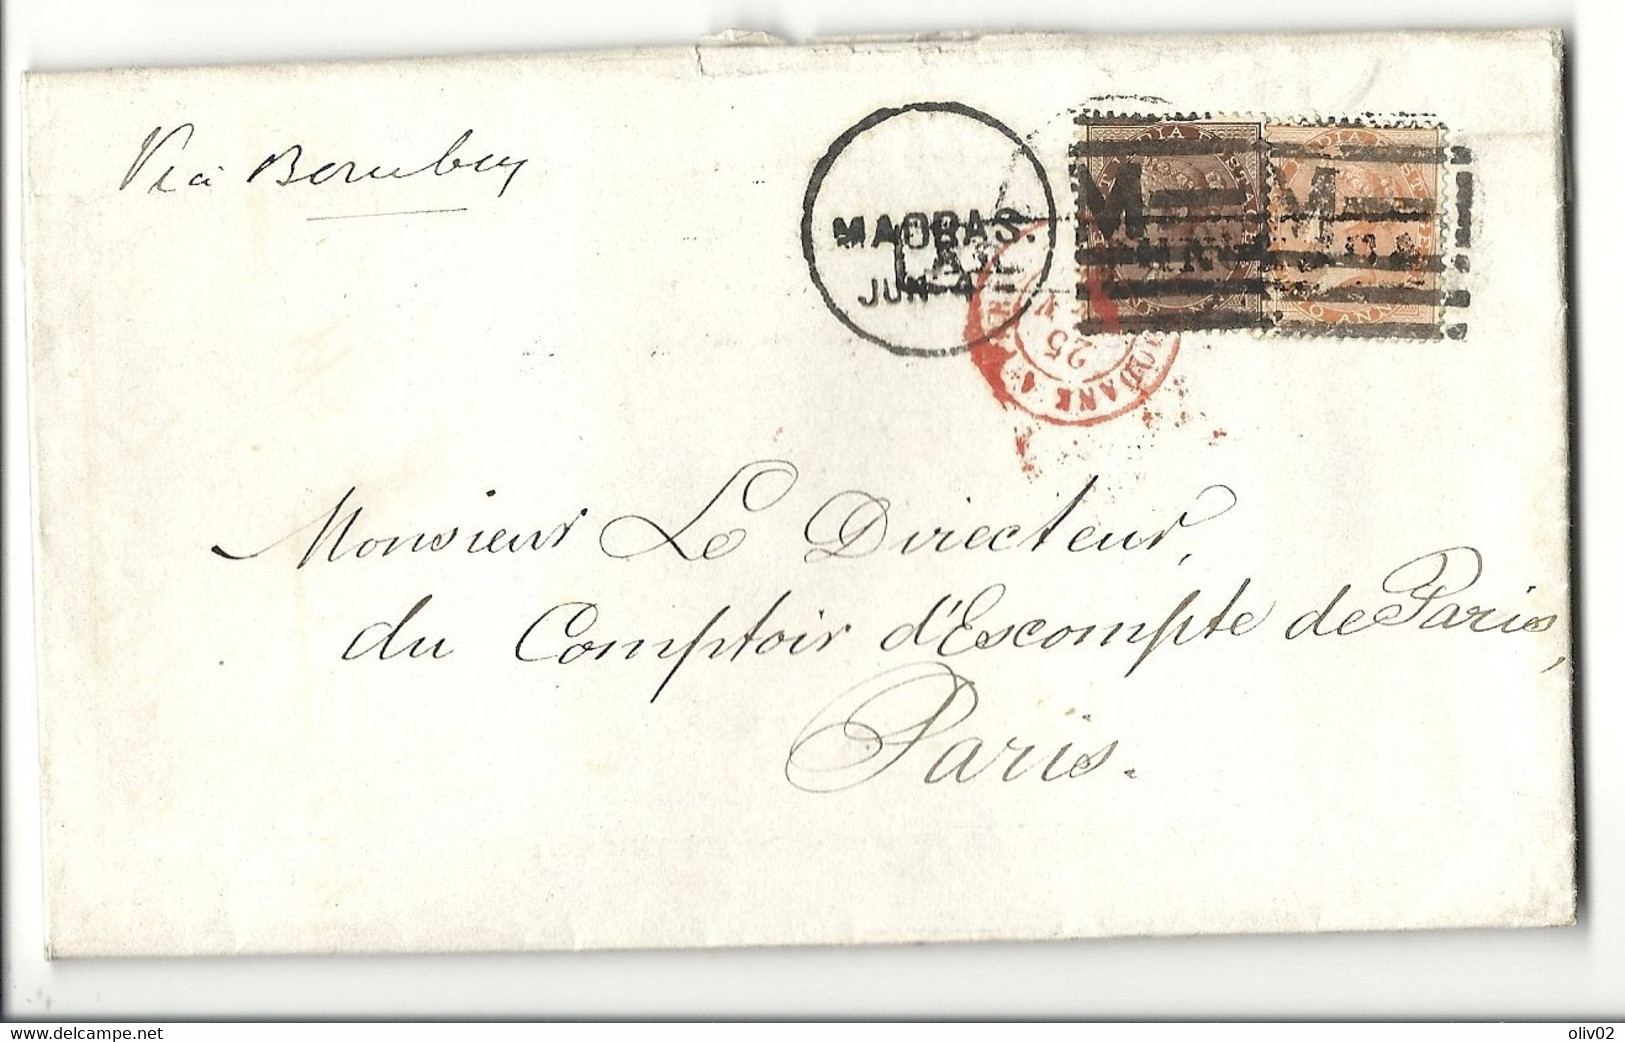 Via Bombay
MADRAS.
JUN
M M
25
MODANE
Monsieur Le Directeur,
du Comptoir d'Escompte de Paris,
Paris.
https://www.delcampe.net
oliv02